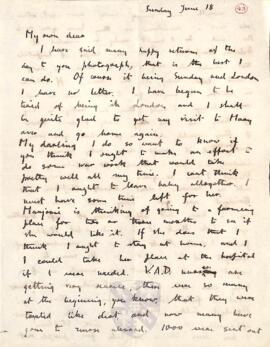 Sunday June 18
43
My own dear
I have said many happy returns of the
day to your photograph, that is the best I
can do. Of course it being Sunday and London
I have no letter. I have begun to be
tired of being in London and I shall
be quite glad to get my visit to Mary
over and go home again.
My darling I do so want to know if
you think I ought to make an effort &
do some war work that would take
pretty well all my time. I can't think
that I ought to leave baby altogether. I
must have some time left for her.
Marjorie is thinking of going to a farming
place for two or three months to see if
she would like it. If she does that I
think I ought to stay at home, and I
I could take her place at the hospital
if I was needed. V.A.D. are
getting very scarce. There were so many
at the beginning, you know, that they were
treated like dirt and now many have
gone to nurse abroad. 1000 were sent out